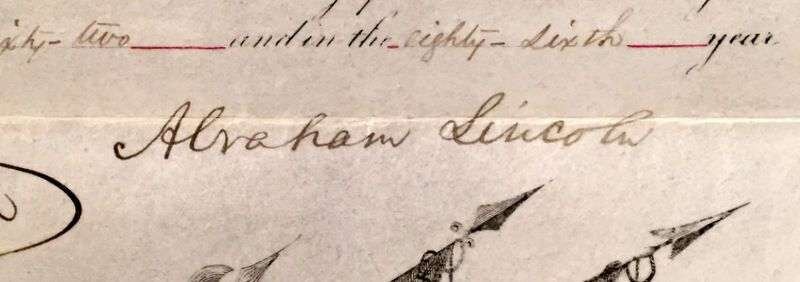 ixty-two and in the eighty-sixth year
Abraham Lincoln